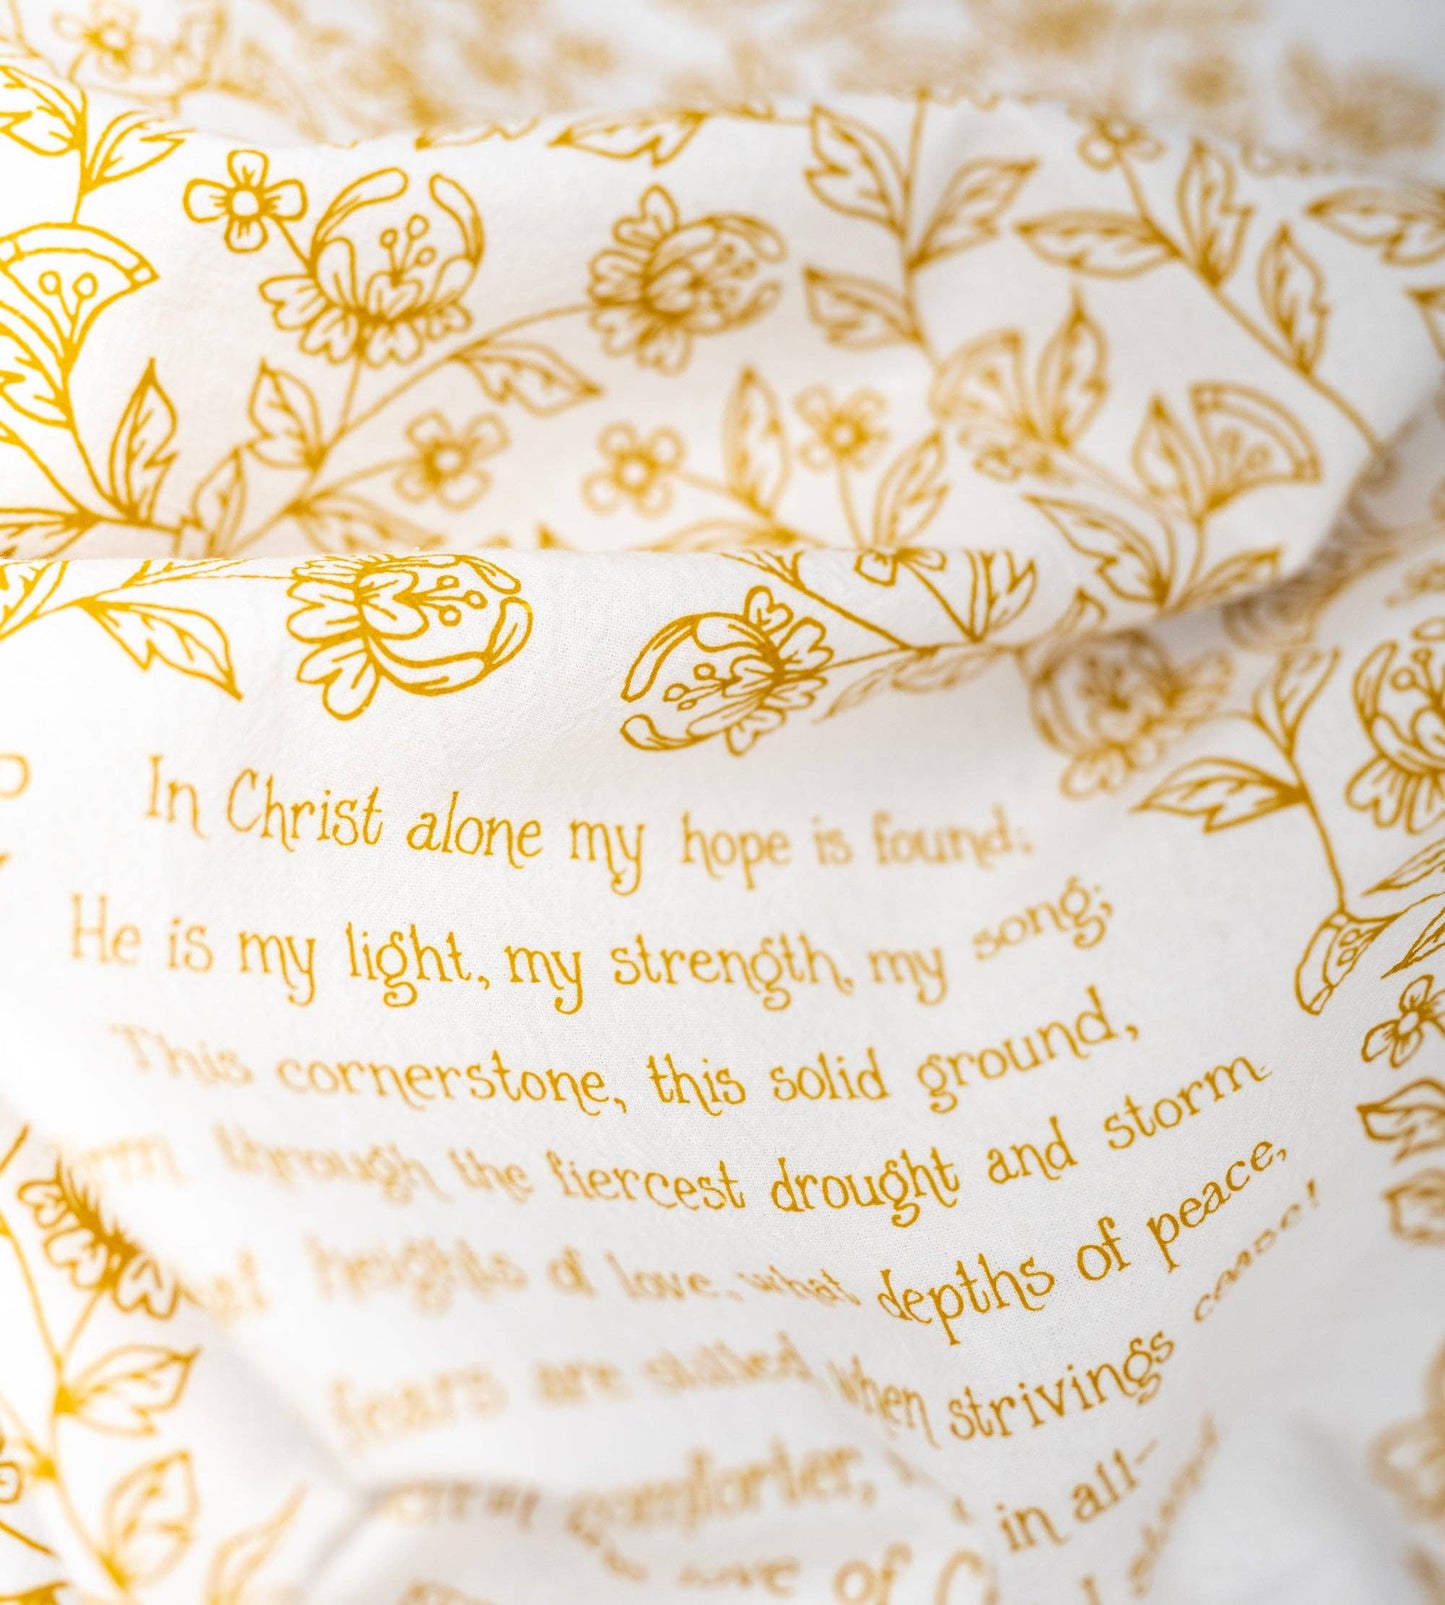 In Christ alone my hope is found;
He is my light, my strength, my song;
This cornerstone, this solid ground,
through the fiercest drought and storm.
heights of love, what depths of peace,
fears are stilled when strivings cease!
comforter, in all-
love of